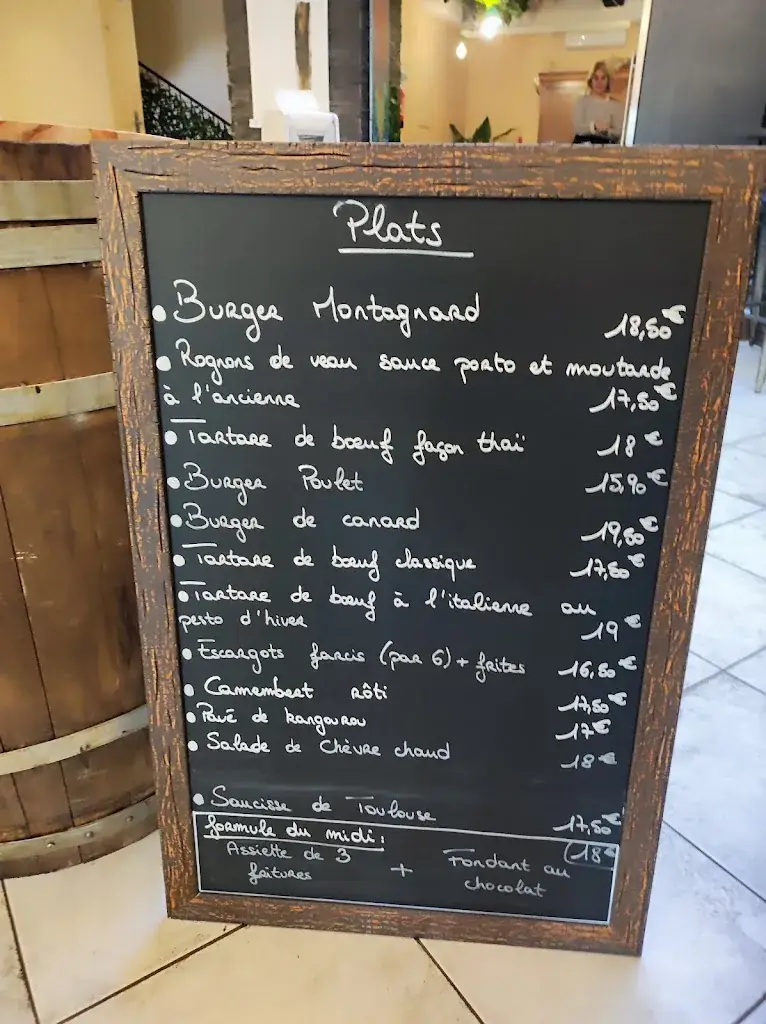 Plats
• Burger Montagnard 18,50€
• Rognons de veau sauce porto et moutarde
à l'ancienne 17,50€
• Tartare de bœuf façon thaï 18€
• Burger Poulet 15,90€
• Burger de canard 19,50€
• Tartare de bœuf classique 17,50€
• Tartare de bœuf à l'italienne au
pesto d'hiver 19€
• Escargots farcis (par 6) + frites 16,50€
• Camembert rôti 17,50€
• Pavé de kangourou 17€
• Salade de chèvre chaud 18€
• Saucisse de Toulouse 17,50€
formule du midi: 18€
Assiette de 3 + Fondant au
fritures chocolat